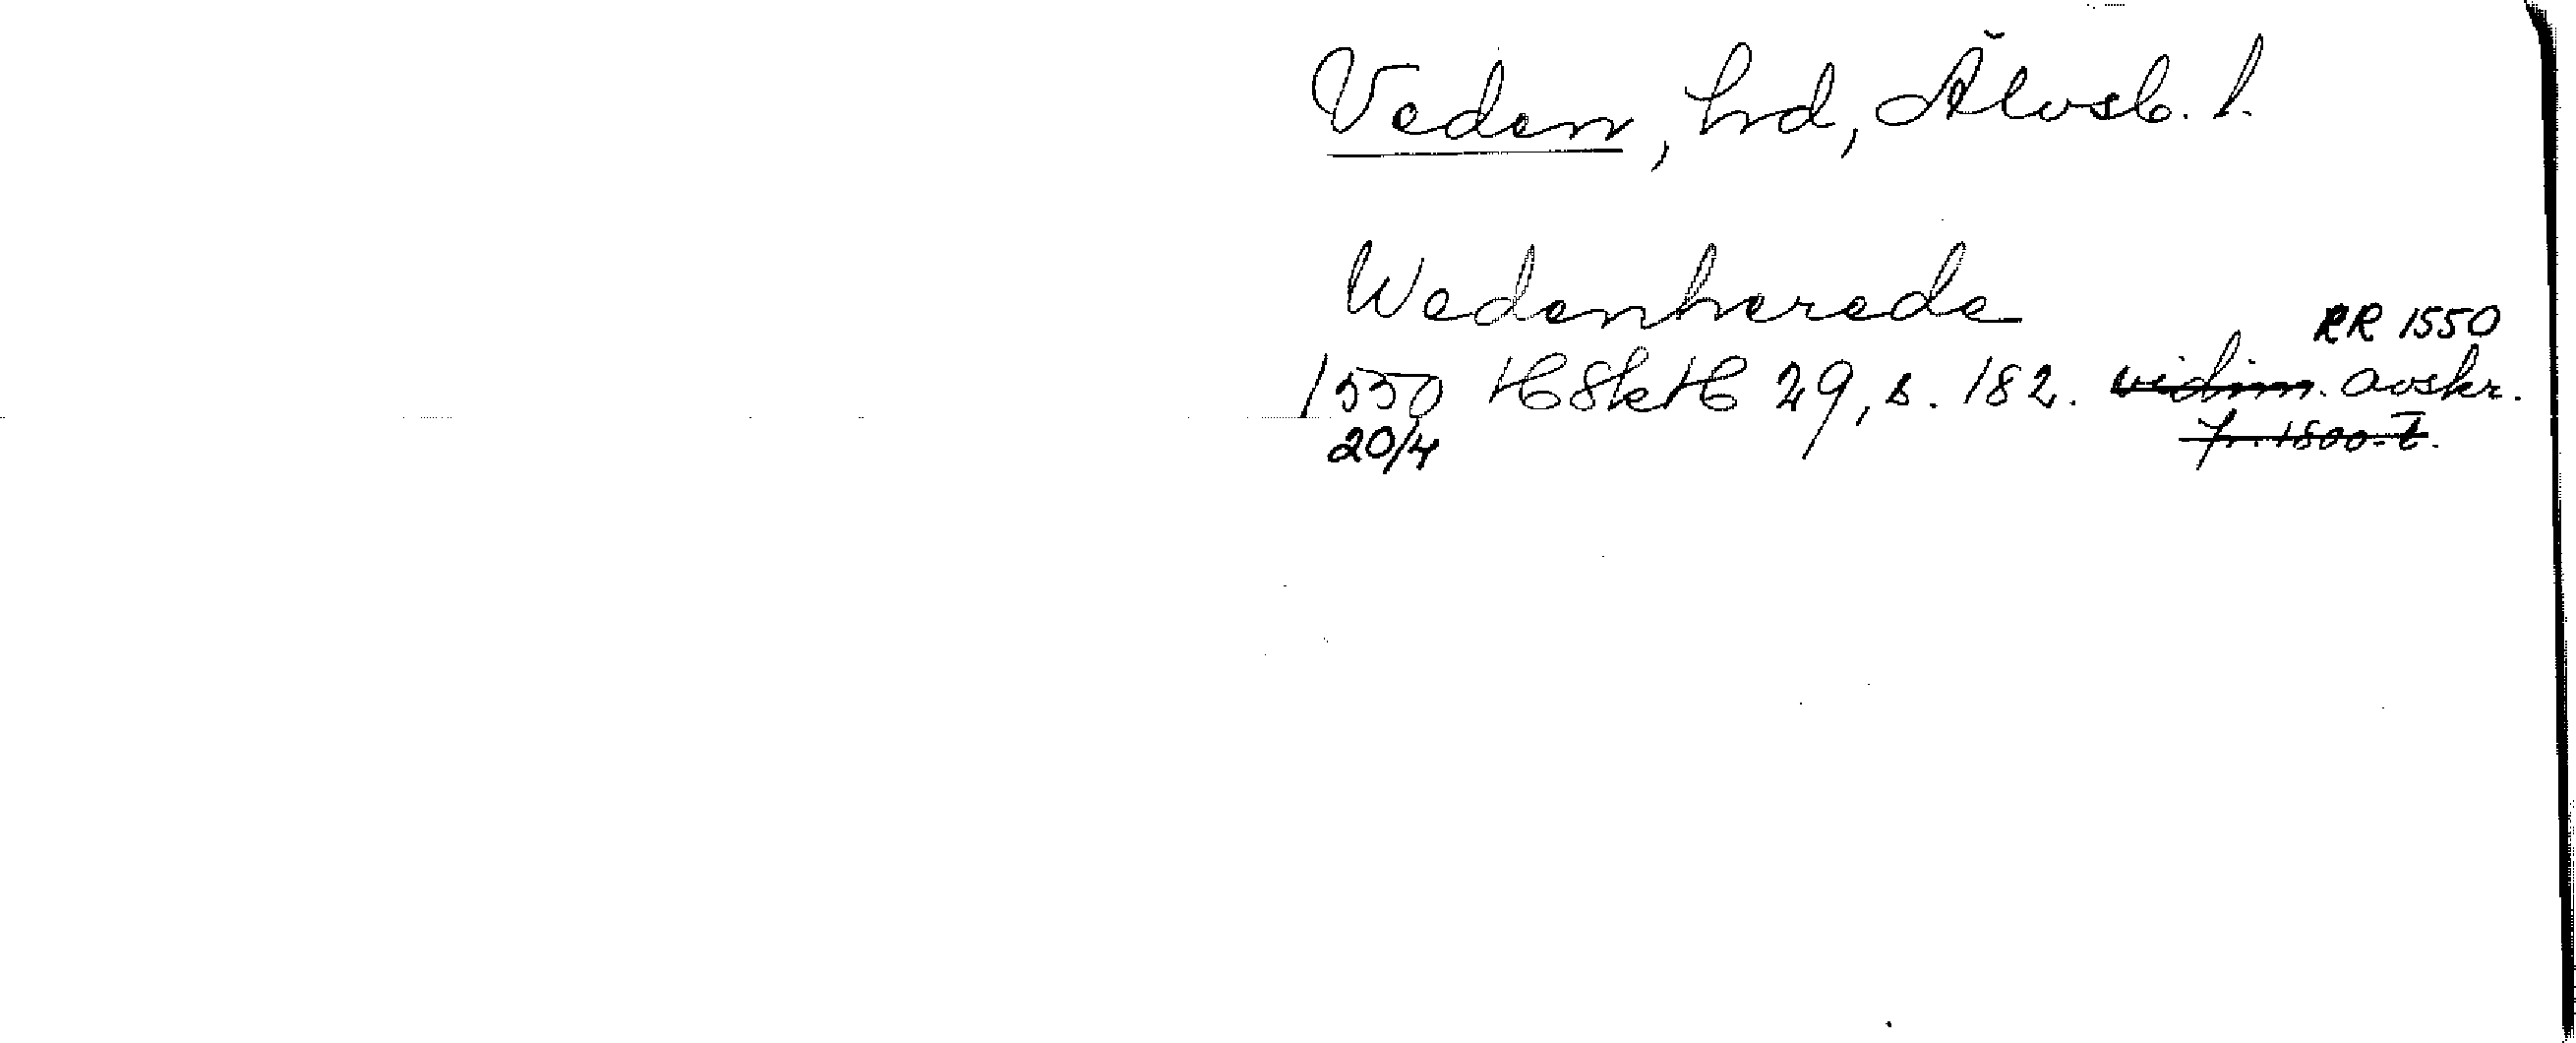 Veden, hrd, Älvsb. l.
Wedenherede
RR 1550
1550 HSkH 29, s. 182. vidim. avskr.
20/4 fr. 1500-t.